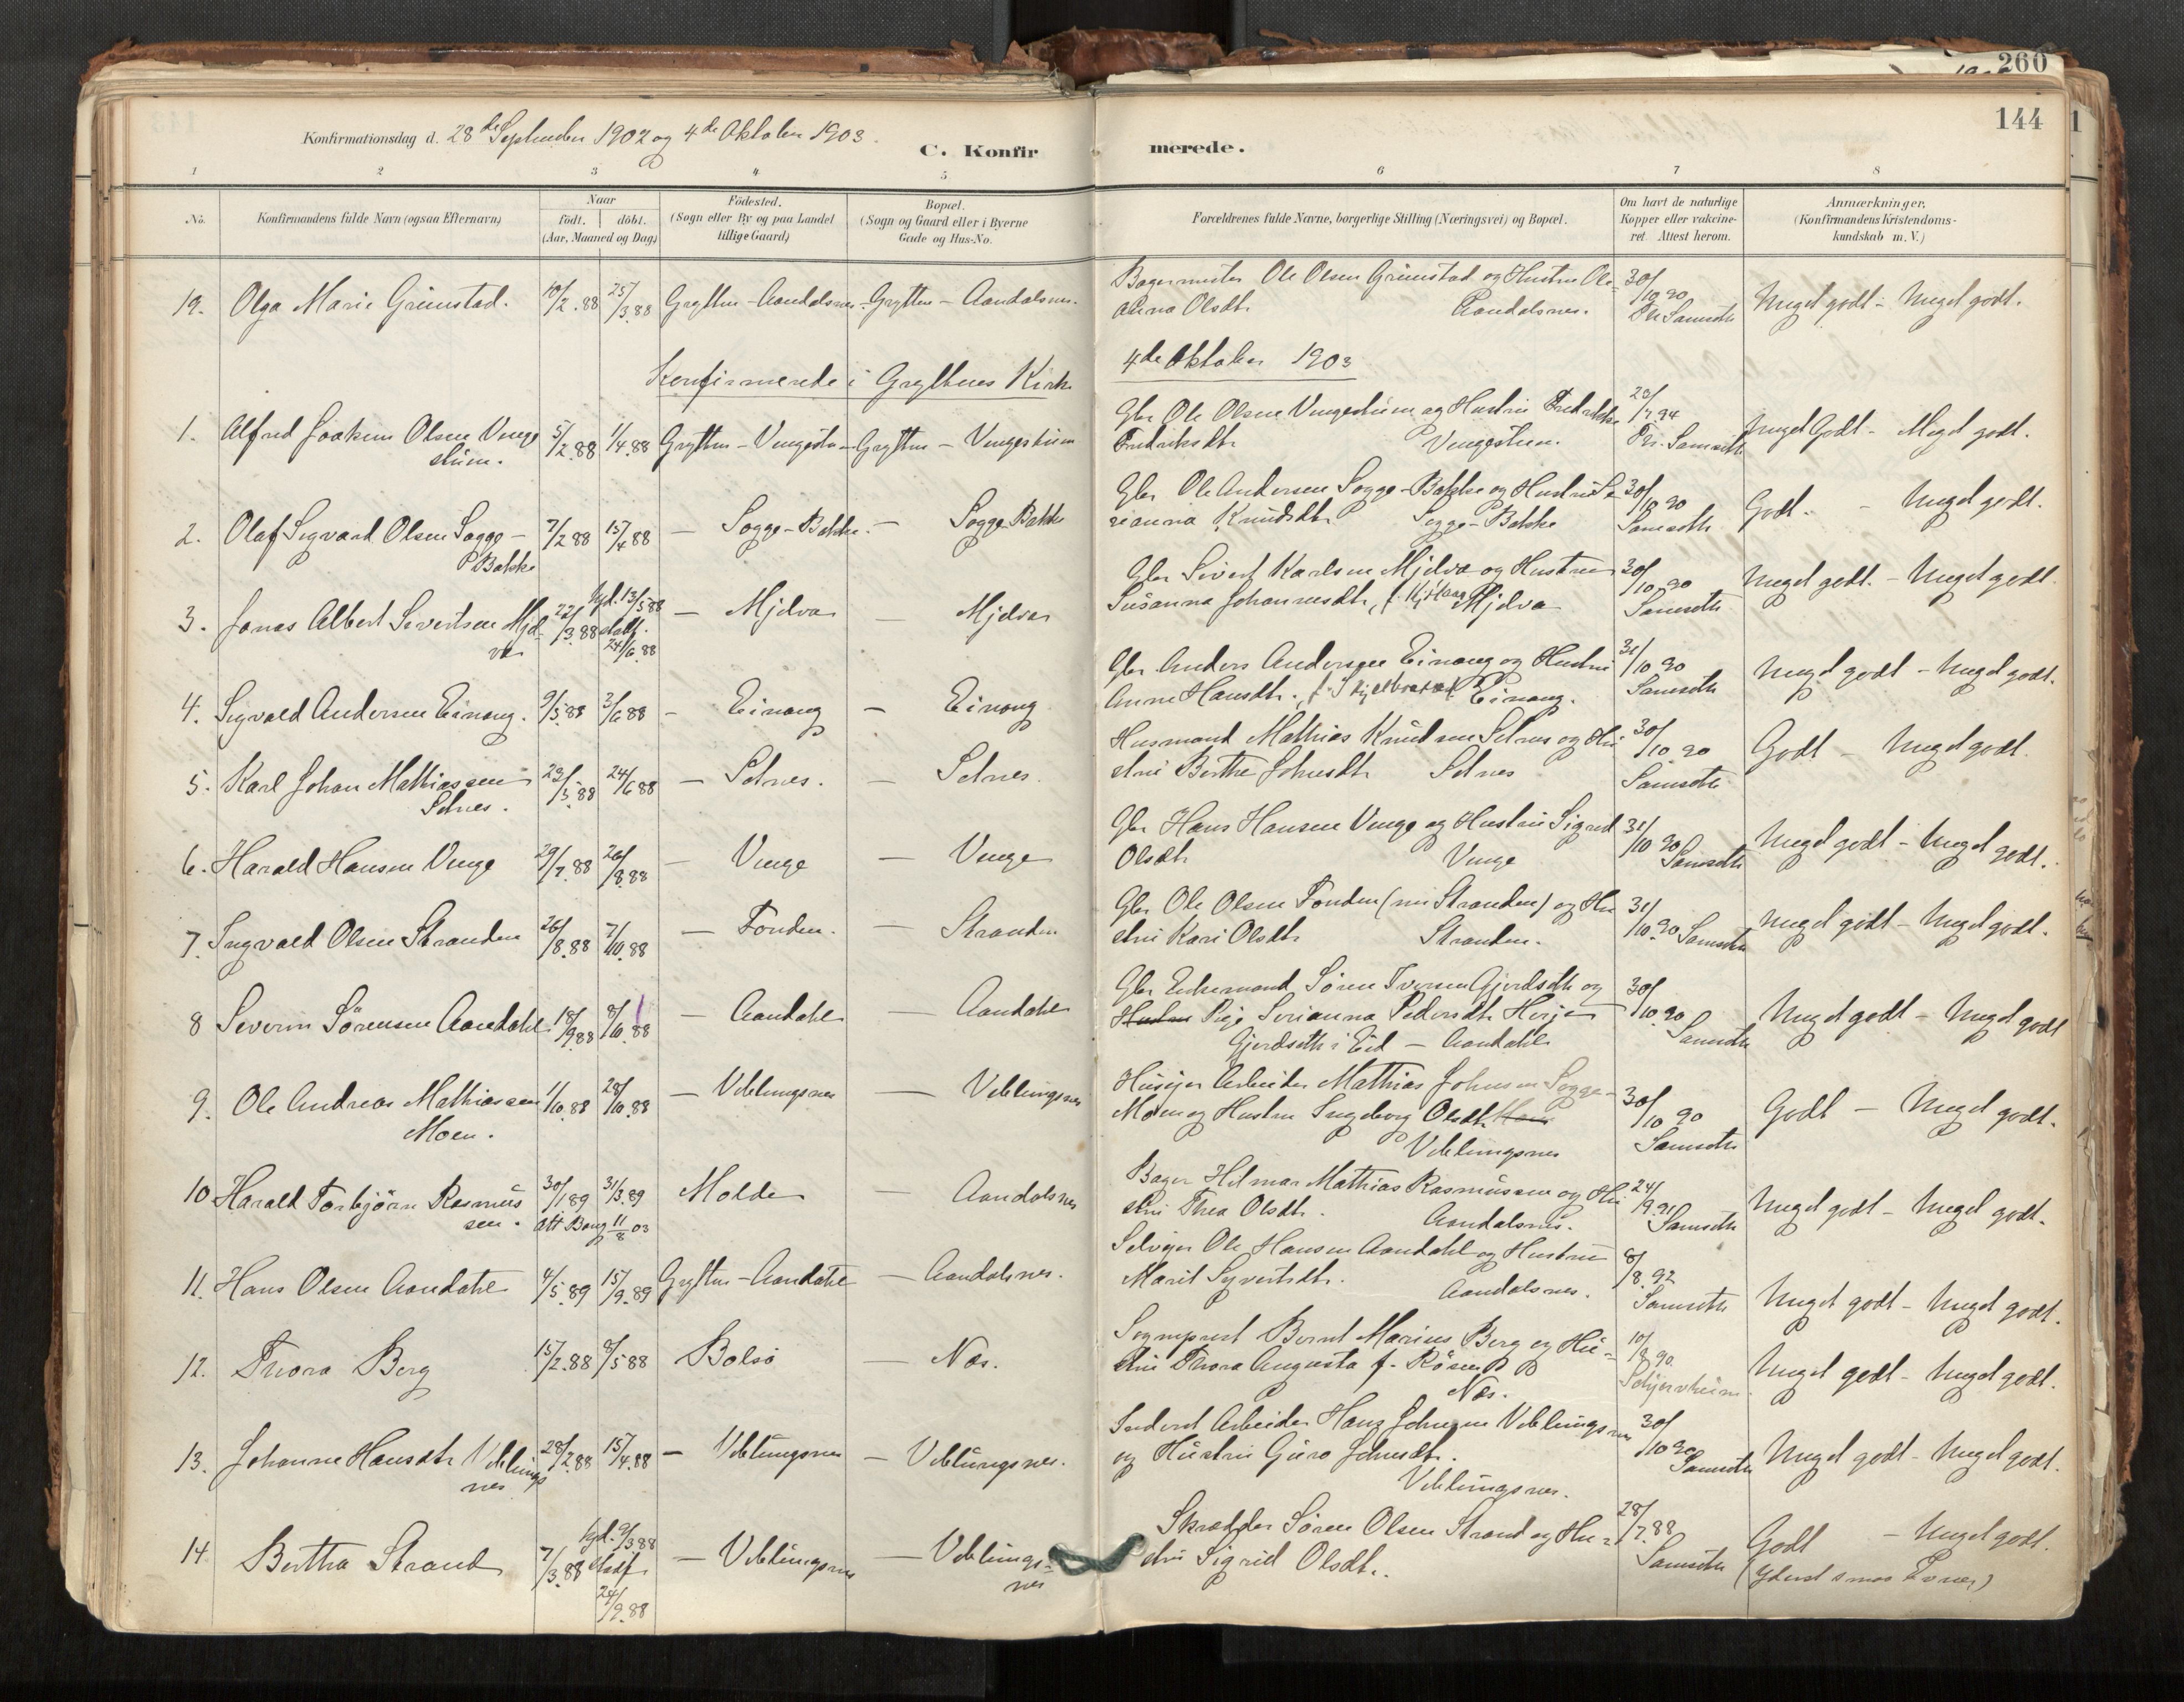 260
144
Konfirmationsdag d. 28de September 1902 og 4de Oktober 1903.
C. Konfirmerede.
1 2 3 4 5 6 7 8
No. Konfirmandens fulde Navn (ogsaa Efternavn) Naar födt. döbt. (Aar, Maaned og Dag) Födested. (Sogn eller By og paa Landet tillige Gaard) Bopæl. (Sogn og Gaard eller i Byerne Gade og Hus-No. Forældrenes fulde Navne, borgerlige Stilling (Næringsvei) og Bopæl. Om havt de naturlige Kopper eller vakcineret. Attest herom. Anmærkninger, (Konfirmandens Kristendomskundskab m. V.)
19. Olga Marie Grimstad. 10/2.88 25/3.88 Grytten - Aandalsnes - Grytten - Aandalsnes. Bagermester Ole Olsen Grimstad og Hustru Ole- 30/10 90 Meget godt - Meget godt.
anna Olsdt. Aandalsnes. Samseth
Konfirmerede i Gryttens Kirke 4de Oktober 1903
1. Alfred Joakim Olsen Venge 5/2.88 1/4.88 Grytten - Grytten - Vengestuen Gbr Ole Olsen Vengestuen og Hustru Fredrikke 94 Meget Godt - Meget godt.
stuen. Fredriksdt. Vengestuen. Samseth
2. Olaf Sigvard Olsen Sogge - 7/2 88 15/4 88 — Sogge-Bakke. — Sogge Bakke Gbr Ole Andersen Sogge-Bakke og Hustru Se 30/10 90 Godt. - Meget godt.
Bakke rianna Knudsdt. Sogge-Bakke Samseth
3. Jonas Albert Sivertsen Mjel- 22/3.88 hjd. 13/5 88 stadf. 24/6.88 — Mjelva — Mjelva Gbr Sivert Karlsen Mjelva og Hustru 30/10 90 Meget godt. - Meget godt
va Susanna Johannesdt, Mjelva Samseth
4. Sigvald Andersen Einang. 9/5.88 3/6 88 - Einang — Einang Gbr Anders Andersen Einang og Hustru 31/10 90 Meget godt - Meget godt.
Anne Hansdt. Einang. Samseth
5. Karl Johan Mathiassen 23/5.88 24/6 88 — Setnes. — Setnes. Husmand Mathias Knudsen Setnes og Hu 30/10 90 Godt - Meget godt.
Setnes. stru Berthe Johnsdt. Setnes Samseth
6. Harald Hansen Venge 29/7.88 26/8.88 — Venge — Venge Gbr Hans Hansen Venge og Hustru Sigrid 31/10 90 Meget godt - Meget godt.
Olsdt. Venge Samseth
7. Ingvald Olsen Stranden 26/8.88 7/10.88 — Fonden. — Stranden Gbr Ole Olsen Fonden (nu Stranden) og Hu 31/10.90 Samseth Meget godt - Meget godt.
stru Kari Olsdt. Stranden.
8 Severin Sørensen Aandahl 18/9.88 8/10.88 — Aandahl — Aandahl Gbr Enkemand Søren Iversen Gjerdseth og 30/10.90 Meget godt - Meget godt
Hustru Pige Serianna Pedersdt. Gjerdseth i Eid — Aandahl Samseth
9. Ole Andreas Mathiassen 1/10.88 28/10.88 — Veblungsnes — Veblungsnes Husejer Arbeider Mathias Johnsen Sogge- 30/10 90 Godt — Meget godt.
Moen. Moen og Hustru Ingeborg Olsdt. Veblungsnes Samseth
10 Harald Torbjörn Rasmus 30/1 89 31/3.89 Molde — Aandalsnes Bager Hilmar Mathias Rasmussen og Hu 24/9.91 Meget godt - Meget godt.
sen. att Bang 11/8 03 stru Thea Olsdt. Aandalsnes. Samseth
11. Hans Olsen Aandahl 4/5.89 15/9.89 Grytten - Aandahl — Aandalsnes. Selveier Ole Hansen Aandahl og Hustru 8/8.92 Meget godt - Meget godt.
Marit Syvertsdt. Aandalsnes. Samseth
12. Thora Berg 15/2.88 8/5 88 Bolsö — Nes. Sogneprest Bernt Marius Berg og Hu- 10/8.90 Meget godt - Meget godt.
stru Thora Augusta f. Nes.
13. Johanne Hansdt. Veblungs 28/2.88 15/4.88 — Veblungsnes — Veblungsnes. Inderst Arbeider Hans Johnsen Veblungsnes 30/10 90 Meget godt - Meget godt.
nes og Hustru Guro Johnsdt. Veblungsnes. Samseth
14 Bertha Strand 7/3.88 hjd. 9/3 88 stadf. 24/9.88 — Veblungsnes — Veblungs- Skrædder Søren Olsen Strand og Hu- 28/7.88 Godt - Meget godt.
nes stru Sigrid Olsdt. Samseth (yderst smaa Evner)